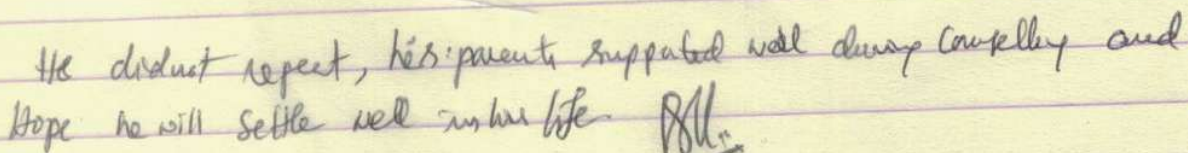 He didnut repeat, his parents suppated well during Counselling and
Hope he will settle well in his life.